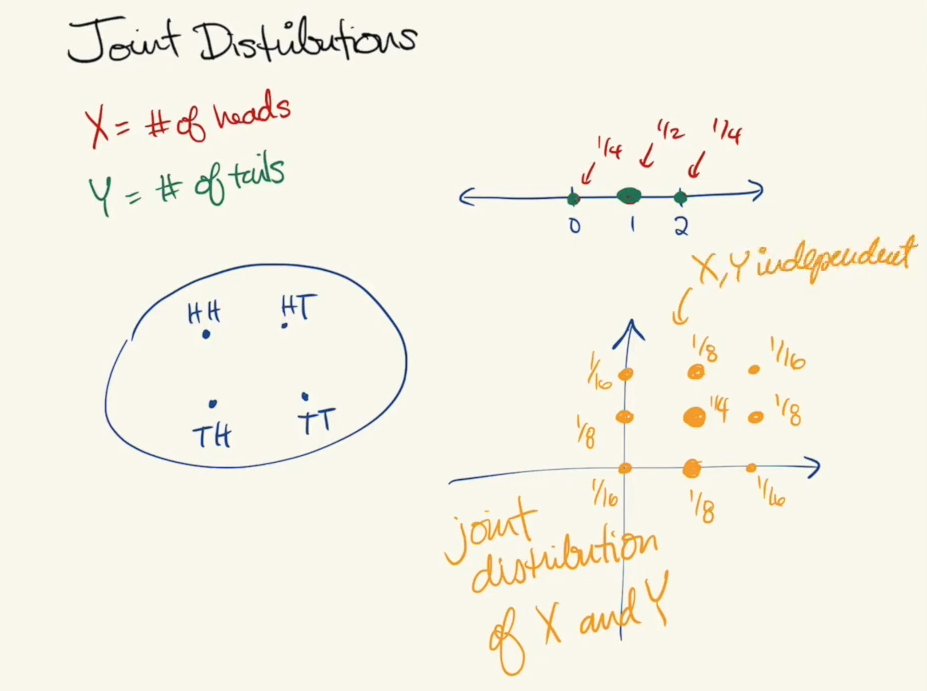 Joint Distributions
X = # of heads
Y = # of tails
1/4 1/2 1/4
0 1 2
X, Y independent
HH HT
TH TT
1/16 1/8 1/16
1/8 1/4 1/8
1/16 1/8 1/16
joint
distribution
of X and Y